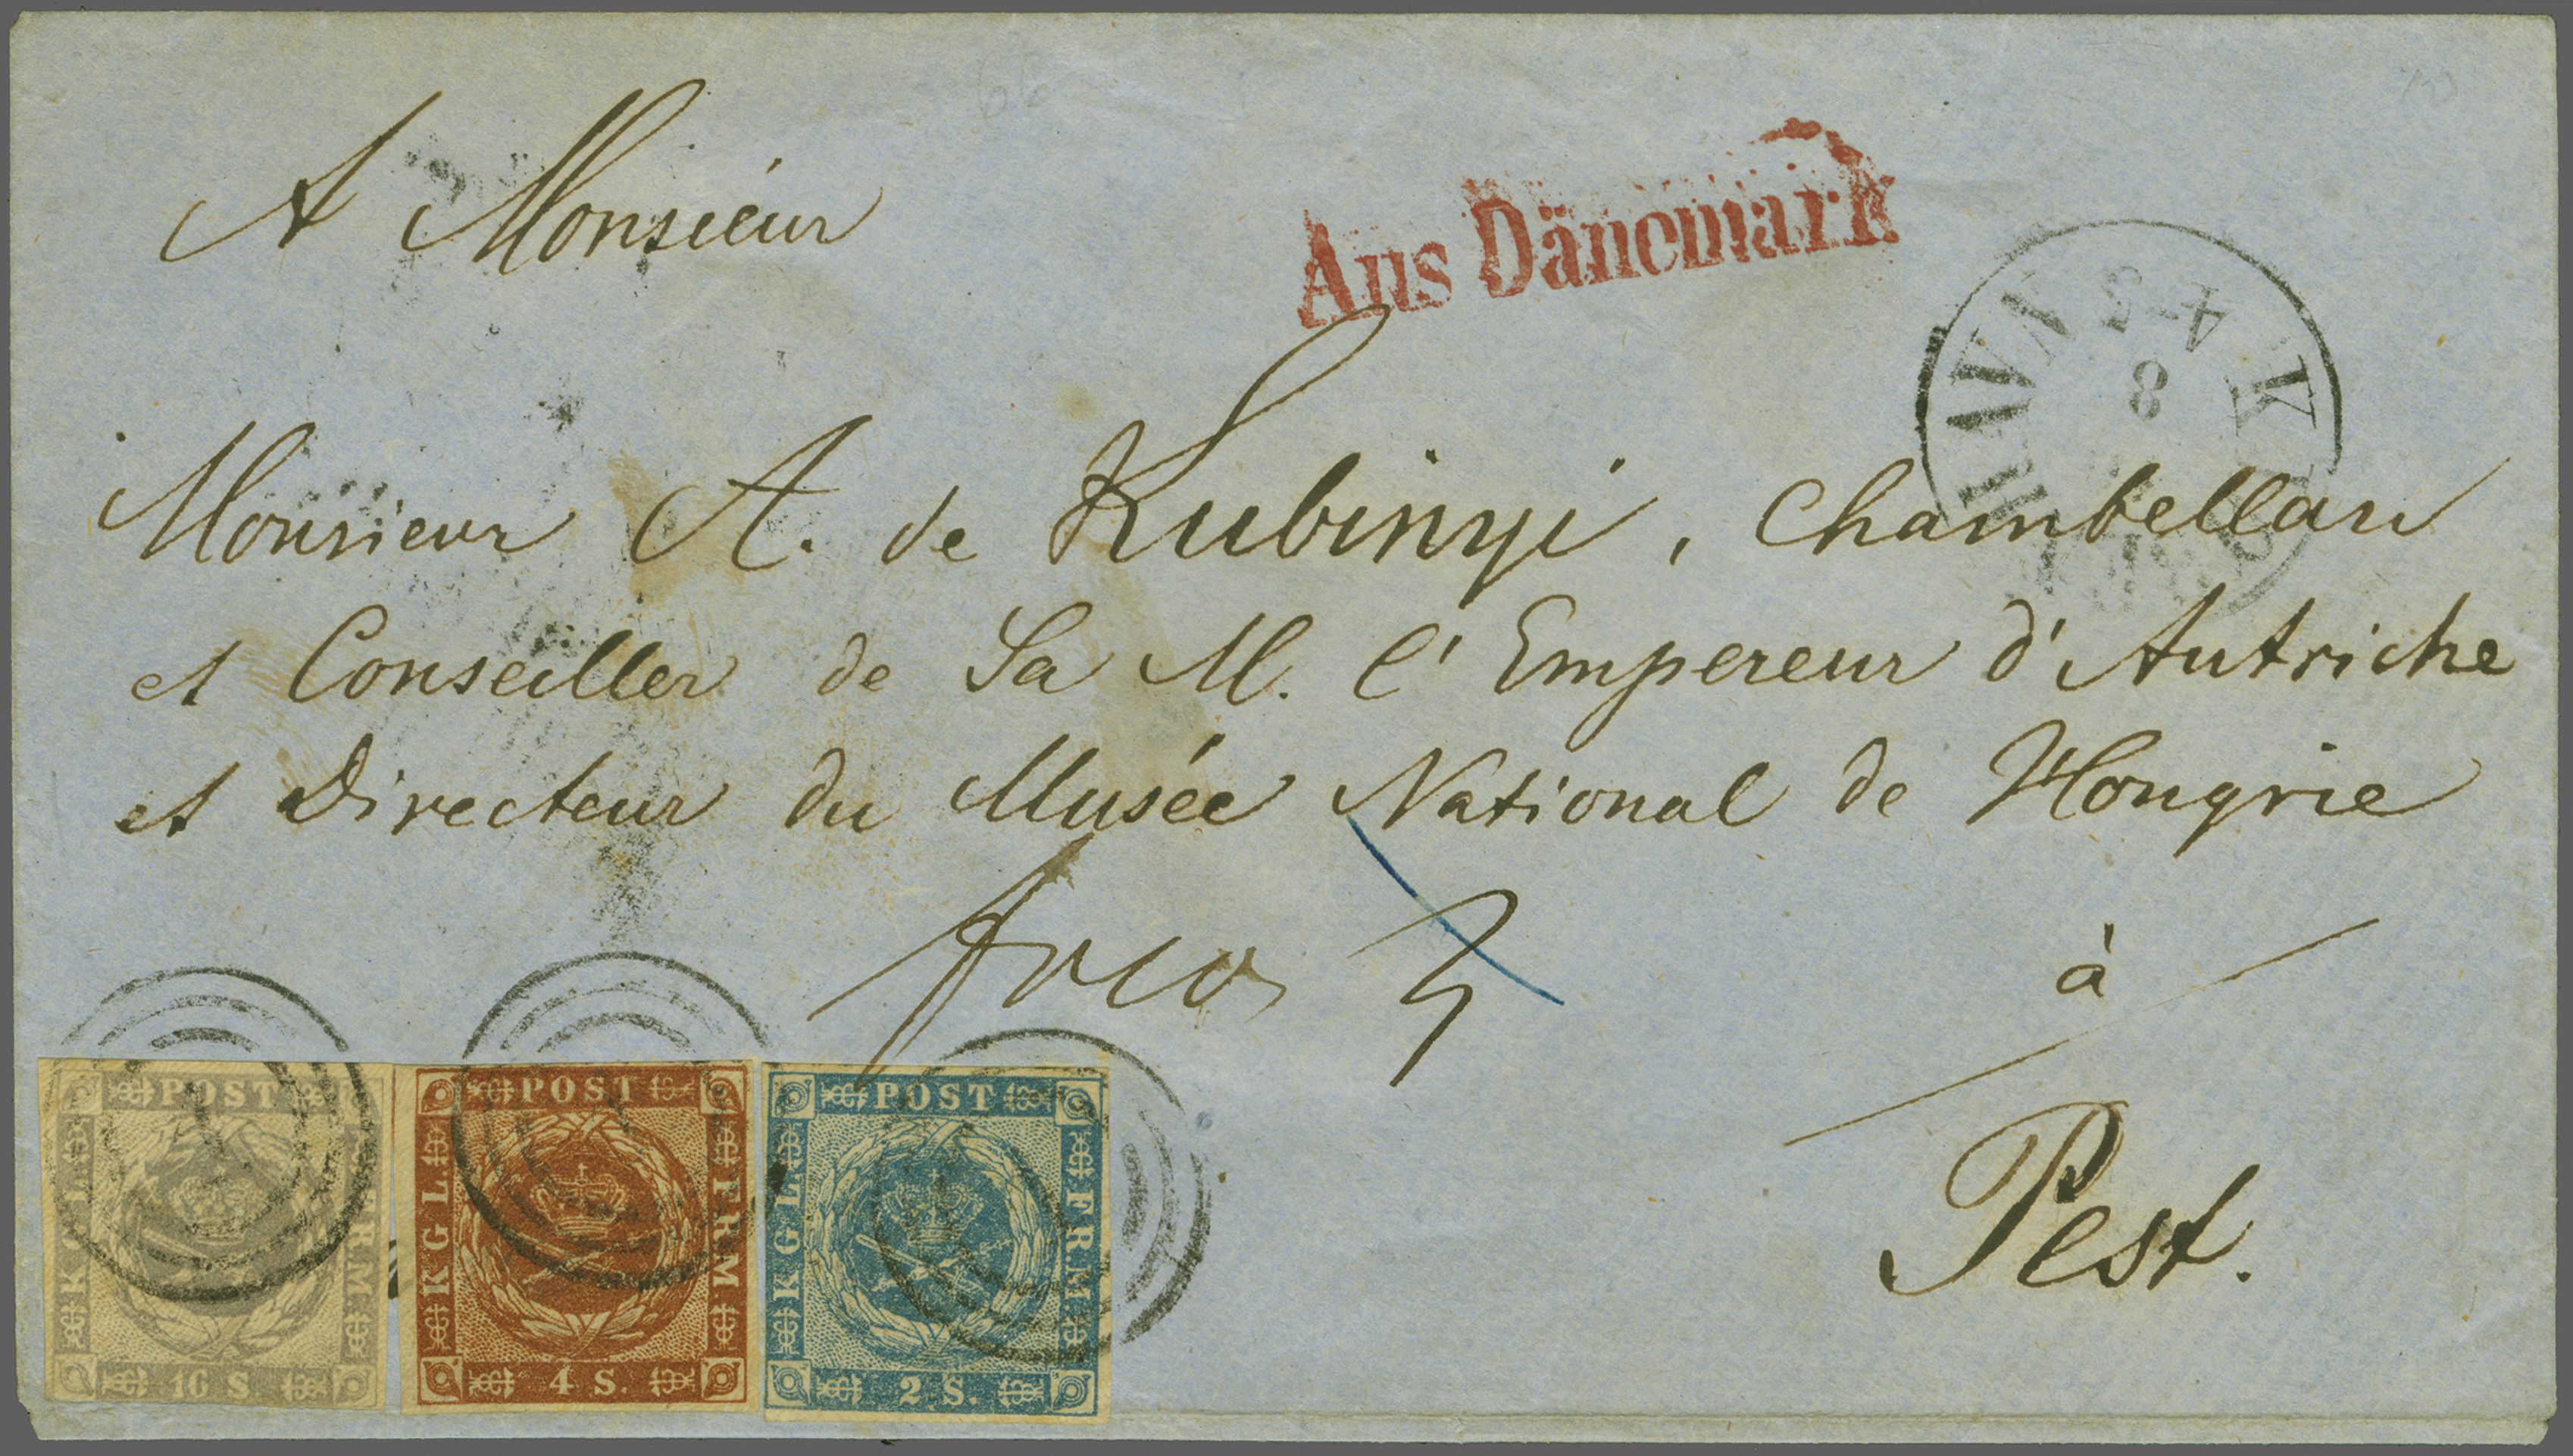 A Monsieur
Aus Dänemark
4-3
8
Monsieur A. de Kubinyi, Chambellan
et Conseiller de Sa M. l'Empereur d'Autriche
et Directeur du Musée National de Hongrie
frco
à
Pest.
POST
KGL.
FRM.
16 S.
POST
KGL.
FRM.
4 S.
POST
KGL.
FRM.
2 S.